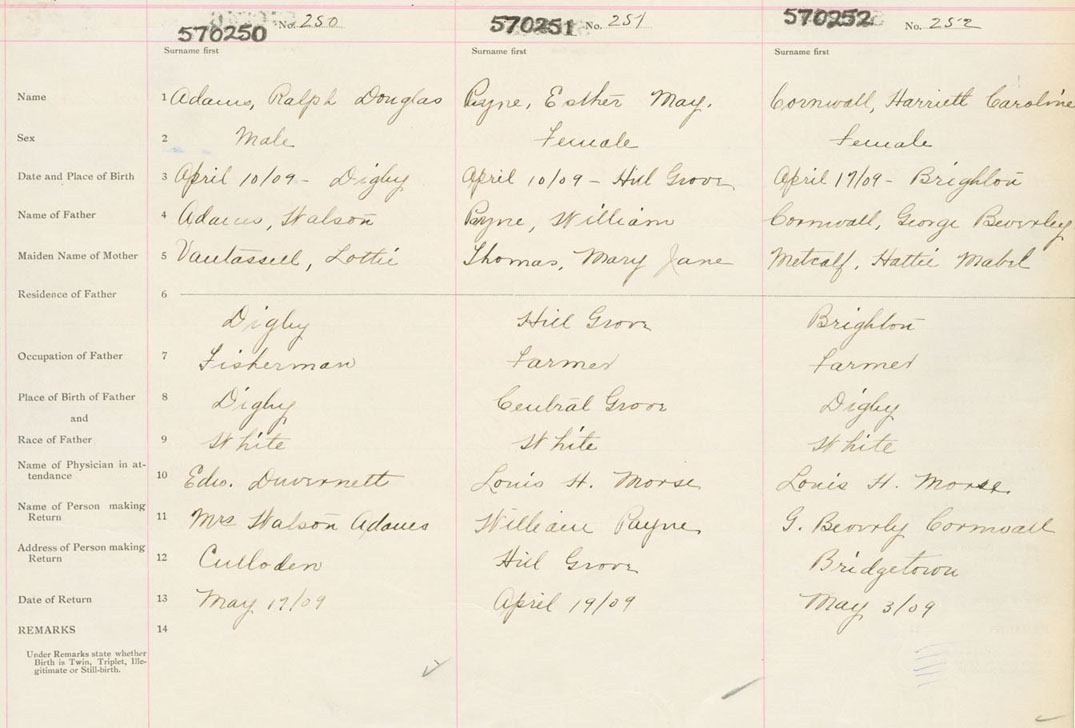 570250 No. 250 570251 No. 251 570252 No. 252
Surname first Surname first Surname first
Name 1 Adams, Ralph Douglas Payne, Esther May. Cornwall, Harriett Caroline
Sex 2 Male Female Female
Date and Place of Birth 3 April 10/09 - Digby April 10/09 - Hill Grove April 17/09 - Brighton
Name of Father 4 Adams, Watson Payne, William Cornwall, George Beverley
Maiden Name of Mother 5 Vantassell, Lottie Thomas, Mary Jane Metcalf, Hattie Mabel
Residence of Father 6
Digby Hill Grove Brighton
Occupation of Father 7 Fisherman Farmer Farmer
Place of Birth of Father 8 Digby Central Grove Digby
and
Race of Father 9 White White White
Name of Physician in at-
tendance 10 Edw. Duvernett Louis H. Morse Louis H. Morse
Name of Person making
Return 11 Mrs Watson Adams William Payne G. Beverly Cornwall
Address of Person making
Return 12 Culloden Hill Grove Bridgetown
Date of Return 13 May 17/09 April 19/09 May 3/09
REMARKS 14
Under Remarks state whether
Birth is Twin, Triplet, Ille-
gitimate or Still-birth.